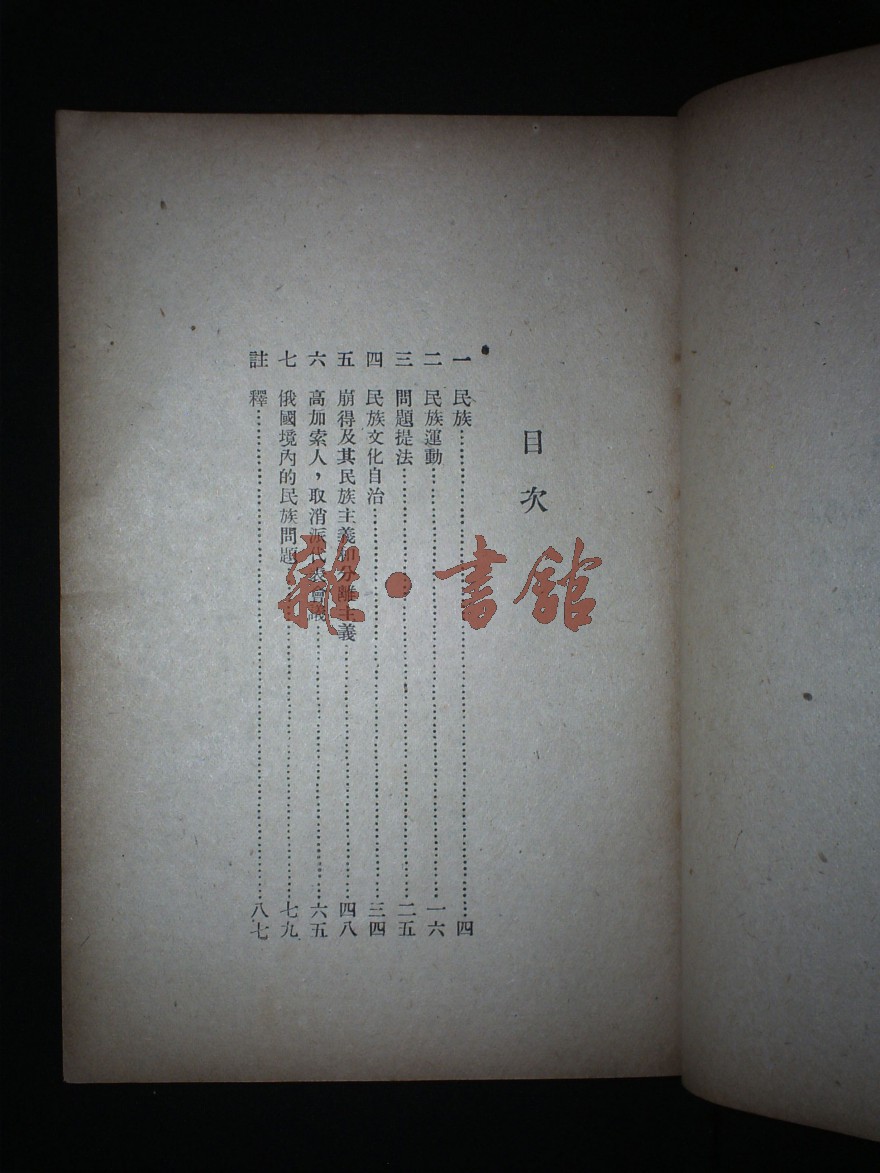 目次
一 民族……四
二 民族運動……一六
三 問題提法……二五
四 民族文化自治……三四
五 崩得及其民族主義和分離主義……四八
六 高加索人，取消派代表會議……六五
七 俄國境內的民族問題……七九
註釋……八七
雜·書館